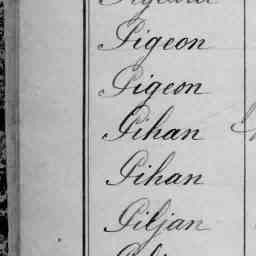 Pigeon
Pigeon
Pihan
Pihan
Piljan